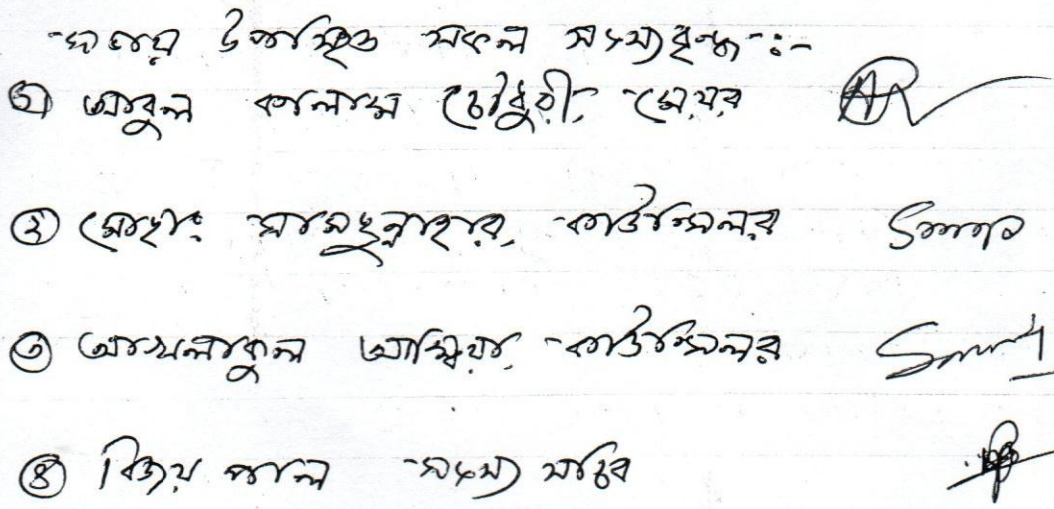 সভায় উপস্থিত সকল সদস্যবৃন্দ :-
১) আবুল কালাম চৌধুরী, মেয়র
২) মোছাঃ সামছুন্নাহার, কাউন্সিলর
৩) আম্বিয়া, কাউন্সিলর
৪) বিজয় পাল সদস্য সচিব